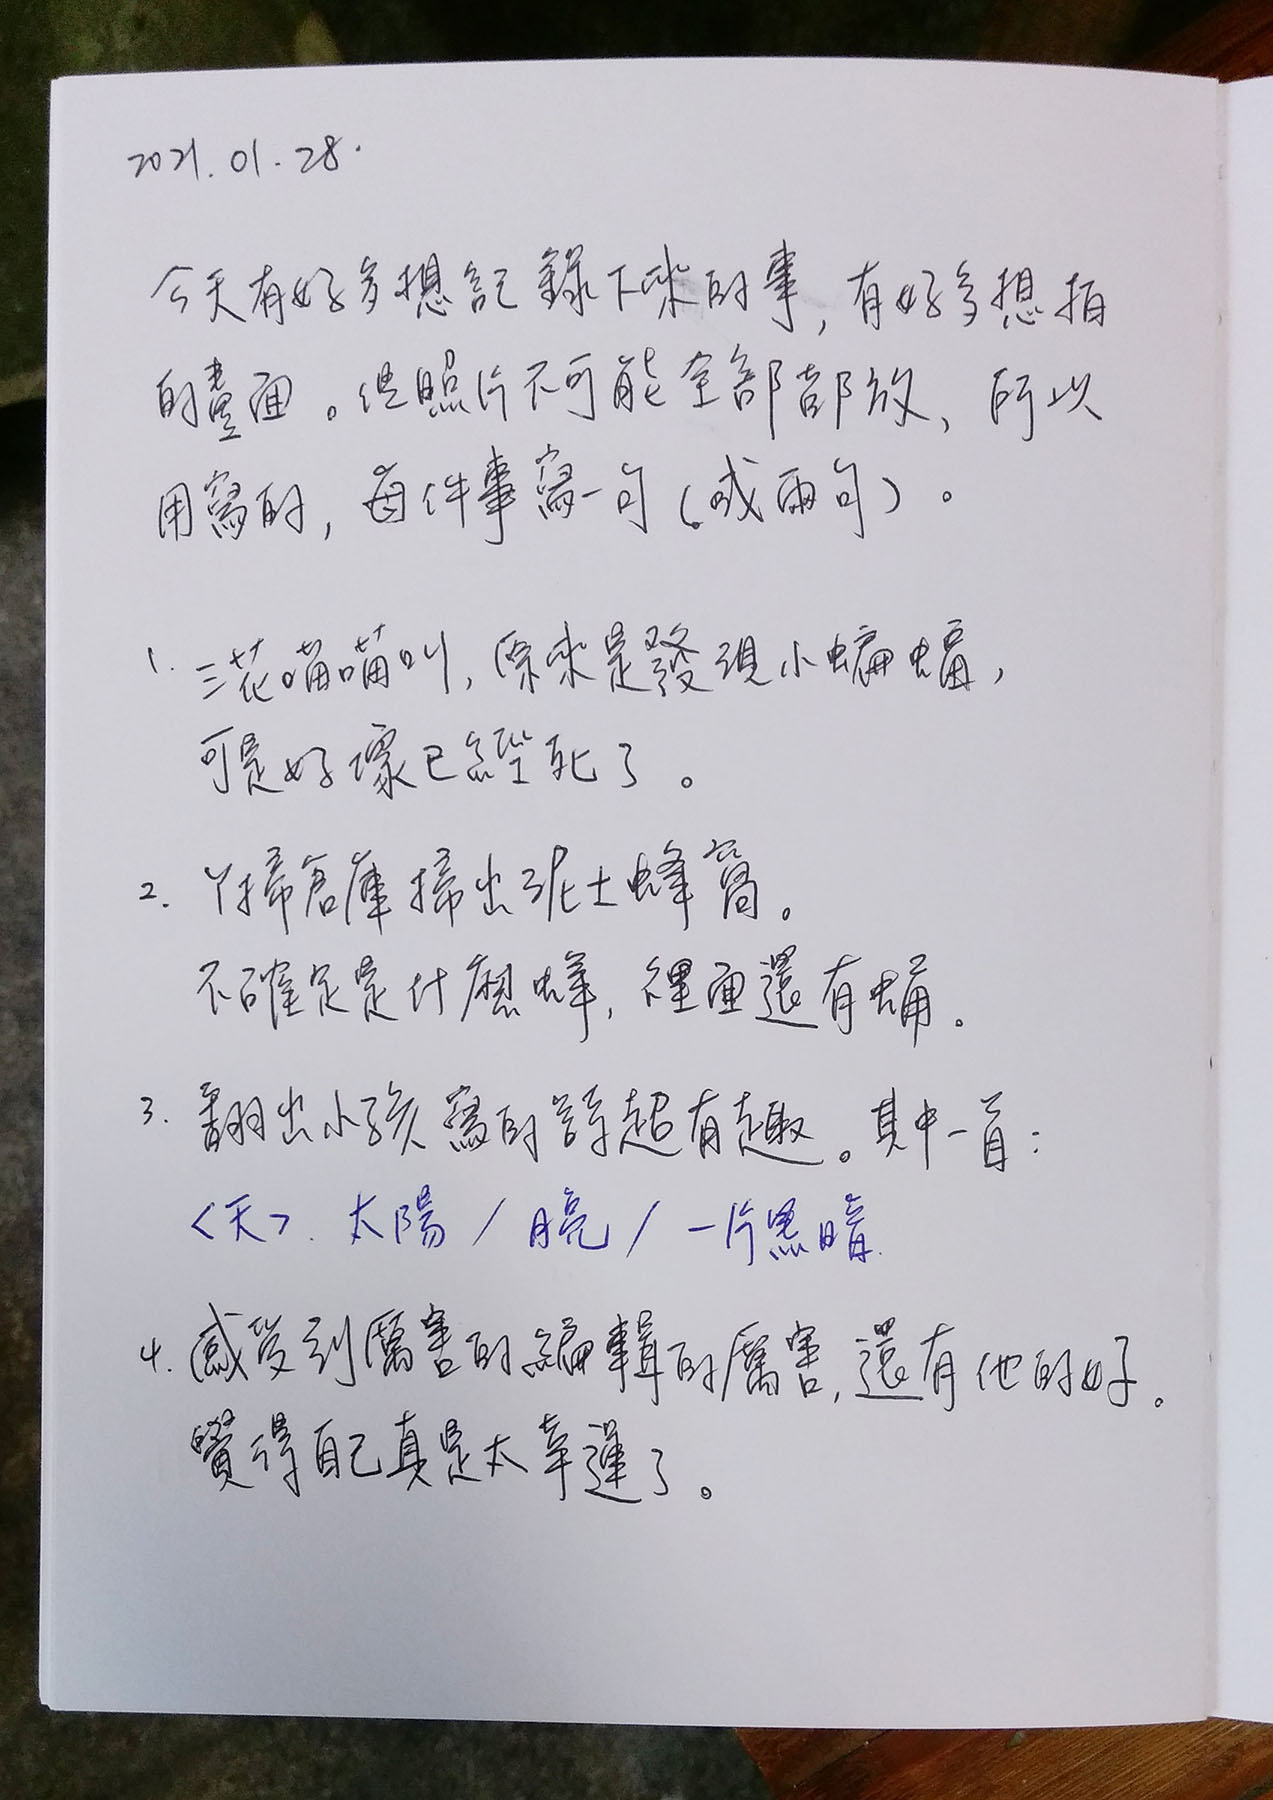 2021.01.28.
今天有好多想記錄下來的事,有好多想拍
的畫面。但照片不可能全部都放、所以
用寫的,每件事寫一句(或兩句)。
1. 三花喵喵叫,原來是發現小蝙蝠,
可是好壞已經死了。
2. ㄚ掃倉庫掃出泥土蜂窩。
不確定是什麼蜂,裡面還有蛹。
3. 翻出小孩寫的詩超有趣。其中一首:
<天>. 太陽/月亮/一片黑暗.
4. 感受到厲害的編輯的厲害,還有他的好。
覺得自己真是太幸運了。